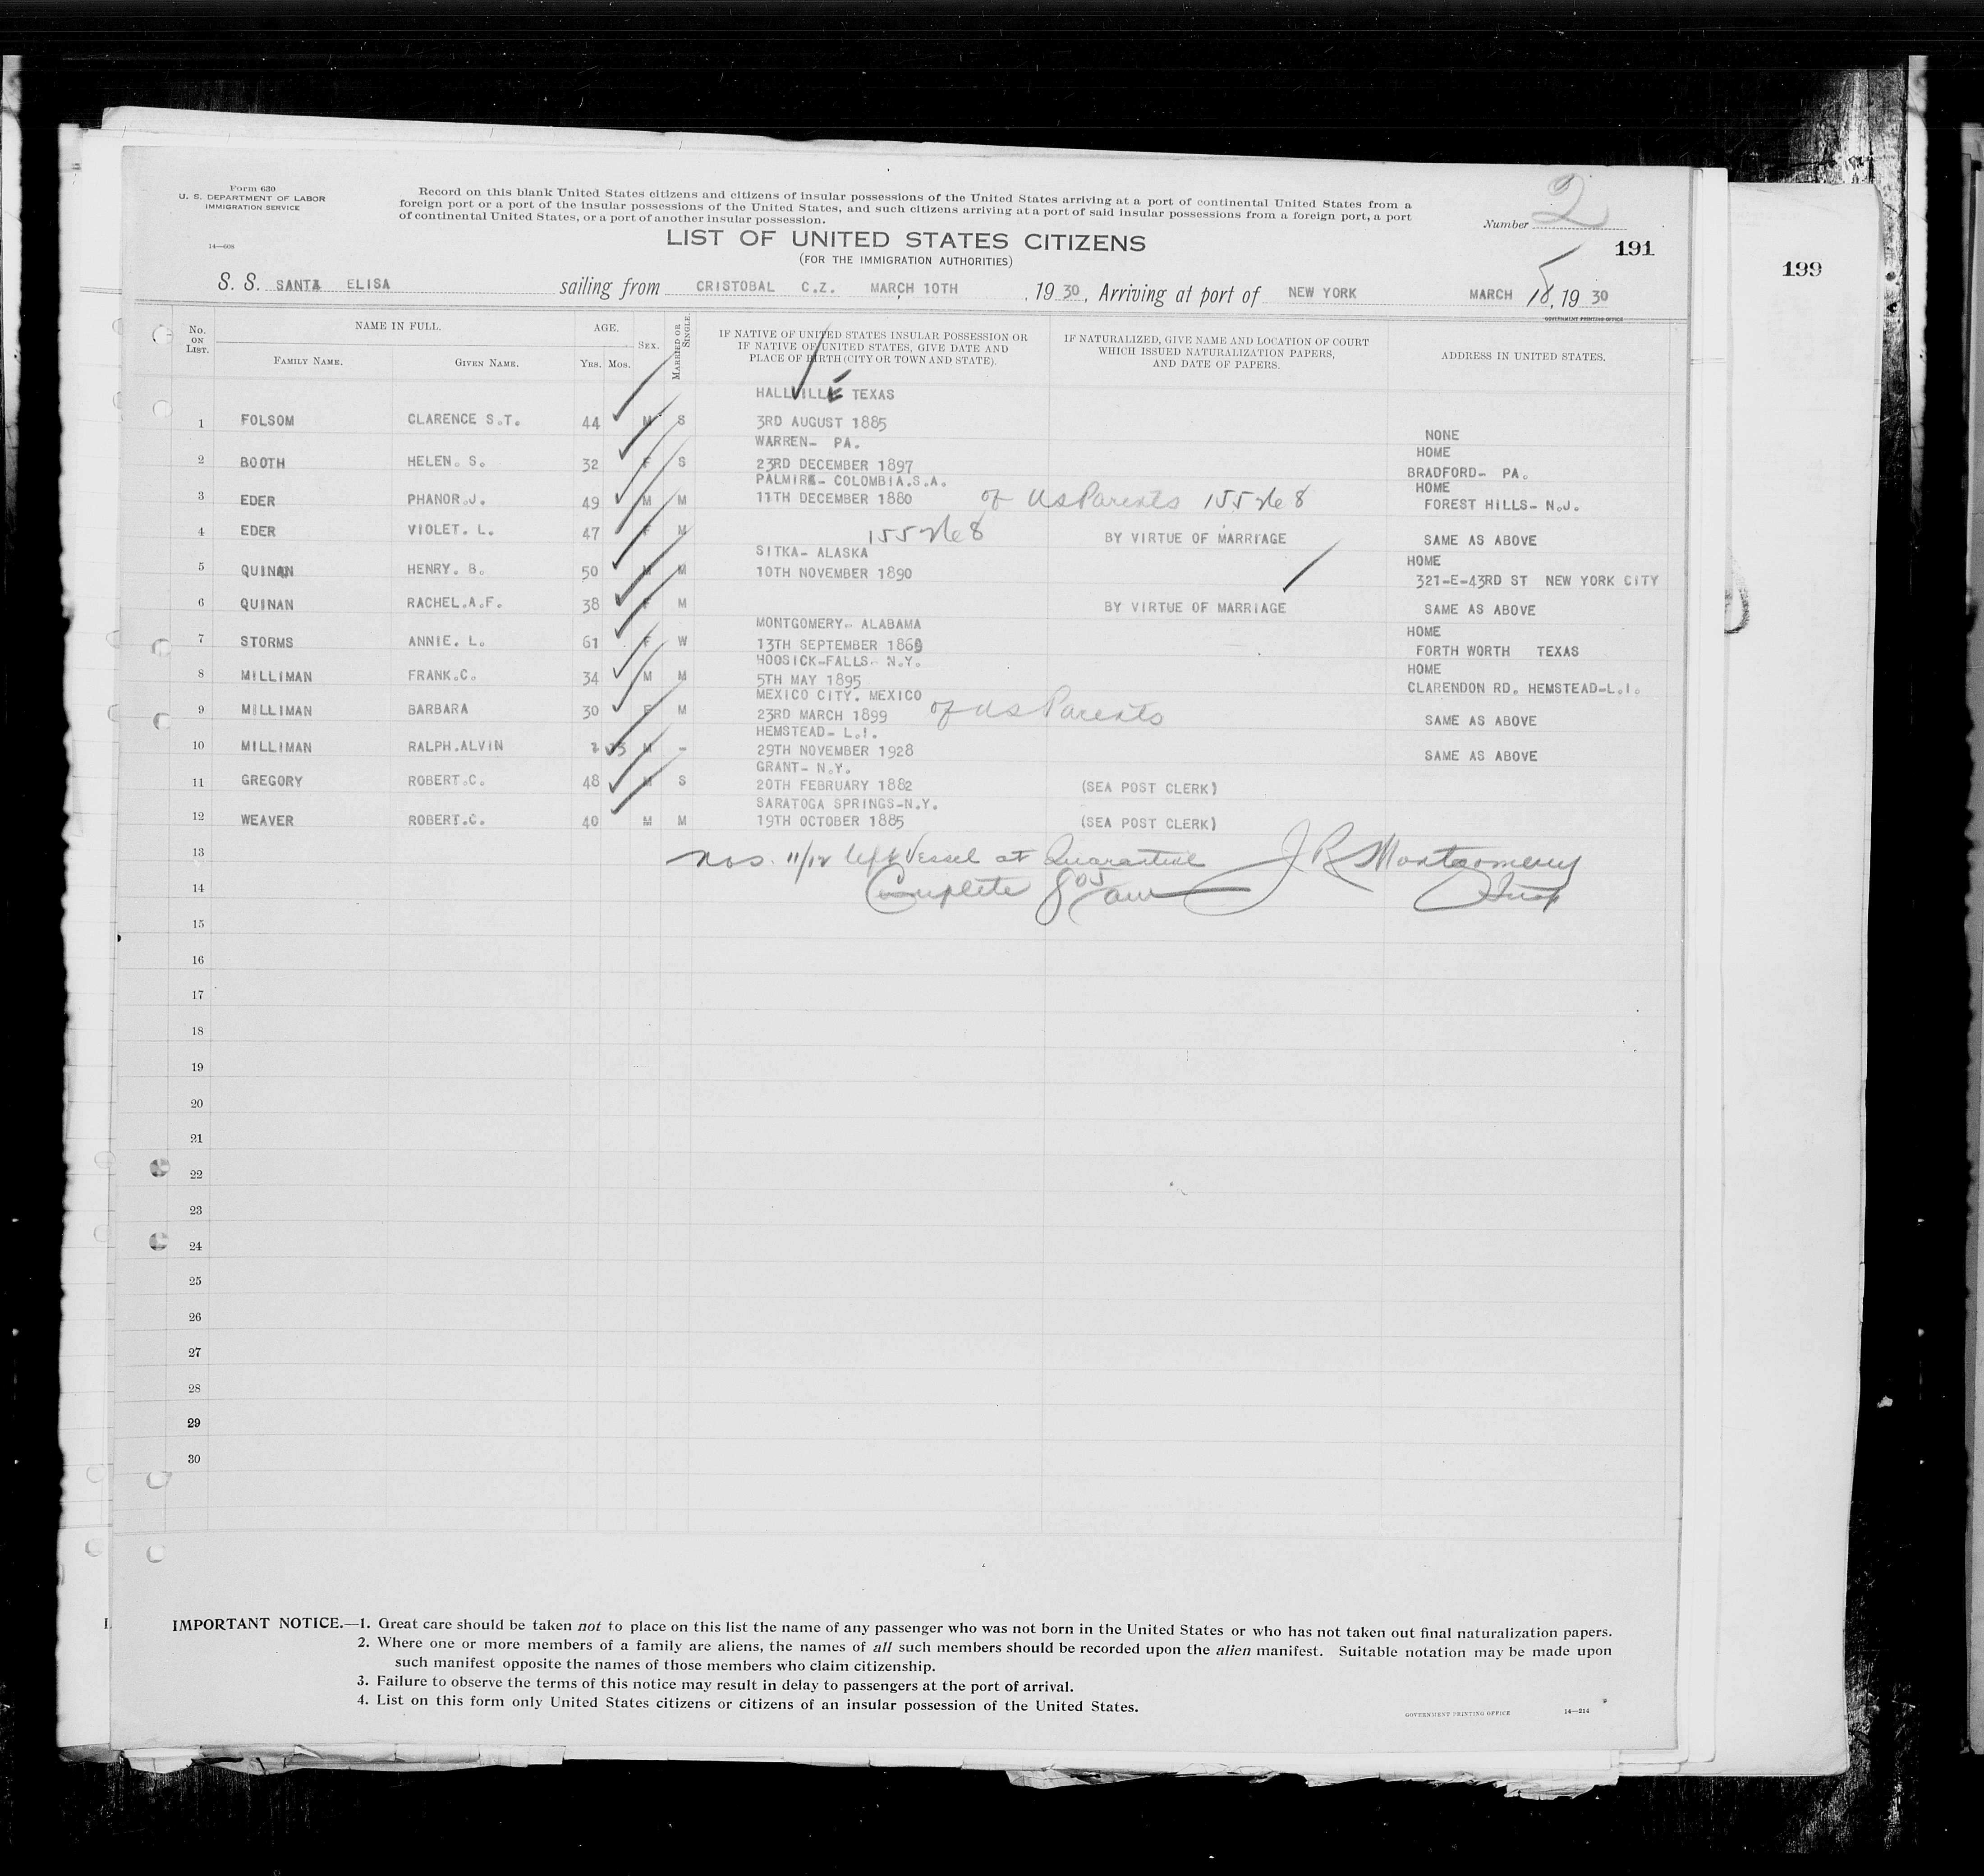 Form 630
U. S. DEPARTMENT OF LABOR
IMMIGRATION SERVICE
14—608
Record on this blank United States citizens and citizens of insular possessions of the United States arriving at a port of continental United States from a
foreign port or a port of the insular possessions of the United States, and such citizens arriving at a port of said insular possessions from a foreign port, a port
of continental United States, or a port of another insular possession.
Number 2
191
199
LIST OF UNITED STATES CITIZENS
(FOR THE IMMIGRATION AUTHORITIES)
S. S. SANTA ELISA sailing from CRISTOBAL C.Z. MARCH 10TH , 19 30, Arriving at port of NEW YORK MARCH 18, 19 30
GOVERNMENT PRINTING OFFICE
No. ON LIST. NAME IN FULL. AGE. SEX. MARRIED OR SINGLE. IF NATIVE OF UNITED STATES INSULAR POSSESSION OR IF NATIVE OF UNITED STATES, GIVE DATE AND PLACE OF BIRTH (CITY OR TOWN AND STATE). IF NATURALIZED, GIVE NAME AND LOCATION OF COURT WHICH ISSUED NATURALIZATION PAPERS, AND DATE OF PAPERS. ADDRESS IN UNITED STATES.
FAMILY NAME. GIVEN NAME. YRS. MOS.
HALLVILLE TEXAS
1 FOLSOM CLARENCE S.T. 44 M S 3RD AUGUST 1885 NONE
WARREN- PA. HOME
2 BOOTH HELEN. S. 32 F S 23RD DECEMBER 1897 BRADFORD- PA.
PALMIRA- COLOMBIA.S.A. HOME
3 EDER PHANOR.J. 49 M M 11TH DECEMBER 1880 of US Parents FOREST HILLS- N.J.
4 EDER VIOLET. L. 47 F M BY VIRTUE OF MARRIAGE SAME AS ABOVE
SITKA- ALASKA HOME
5 QUINAN HENRY. B. 50 M M 10TH NOVEMBER 1890 321-E-43RD ST NEW YORK CITY
6 QUINAN RACHEL.A.F. 38 F M BY VIRTUE OF MARRIAGE SAME AS ABOVE
MONTGOMERY- ALABAMA HOME
7 STORMS ANNIE. L. 61 F W 13TH SEPTEMBER 1869 FORTH WORTH TEXAS
HOOSICK-FALLS- N.Y. HOME
8 MILLIMAN FRANK.C. 34 M M 5TH MAY 1895 CLARENDON RD. HEMSTEAD-L.I.
MEXICO CITY. MEXICO
9 MILLIMAN BARBARA 30 F M 23RD MARCH 1899 of US Parents SAME AS ABOVE
HEMSTEAD- L.I.
10 MILLIMAN RALPH.ALVIN M - 29TH NOVEMBER 1928 SAME AS ABOVE
GRANT- N.Y.
11 GREGORY ROBERT.C. 48 M S 20TH FEBRUARY 1882 (SEA POST CLERK)
SARATOGA SPRINGS-N.Y.
12 WEAVER ROBERT.C. 40 M M 19TH OCTOBER 1885 (SEA POST CLERK)
13 Nos. 11/12 left Vessel at Quarantine J R Montgomery
14 Complete 8 05 am Insp
15
16
17
18
19
20
21
22
23
24
25
26
27
28
29
30
IMPORTANT NOTICE.—1. Great care should be taken not to place on this list the name of any passenger who was not born in the United States or who has not taken out final naturalization papers.
2. Where one or more members of a family are aliens, the names of all such members should be recorded upon the alien manifest. Suitable notation may be made upon
such manifest opposite the names of those members who claim citizenship.
3. Failure to observe the terms of this notice may result in delay to passengers at the port of arrival.
4. List on this form only United States citizens or citizens of an insular possession of the United States.
GOVERNMENT PRINTING OFFICE 14—214